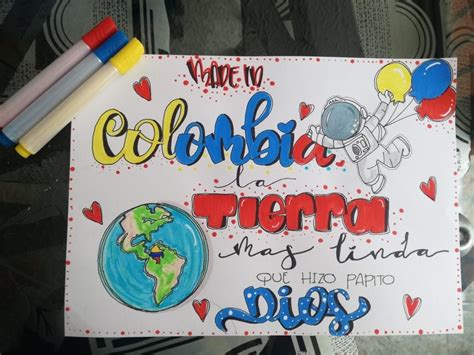 MADE IN
Colombia
la
TIERRA
mas linda
QUE HIZO PAPITO
DIOS